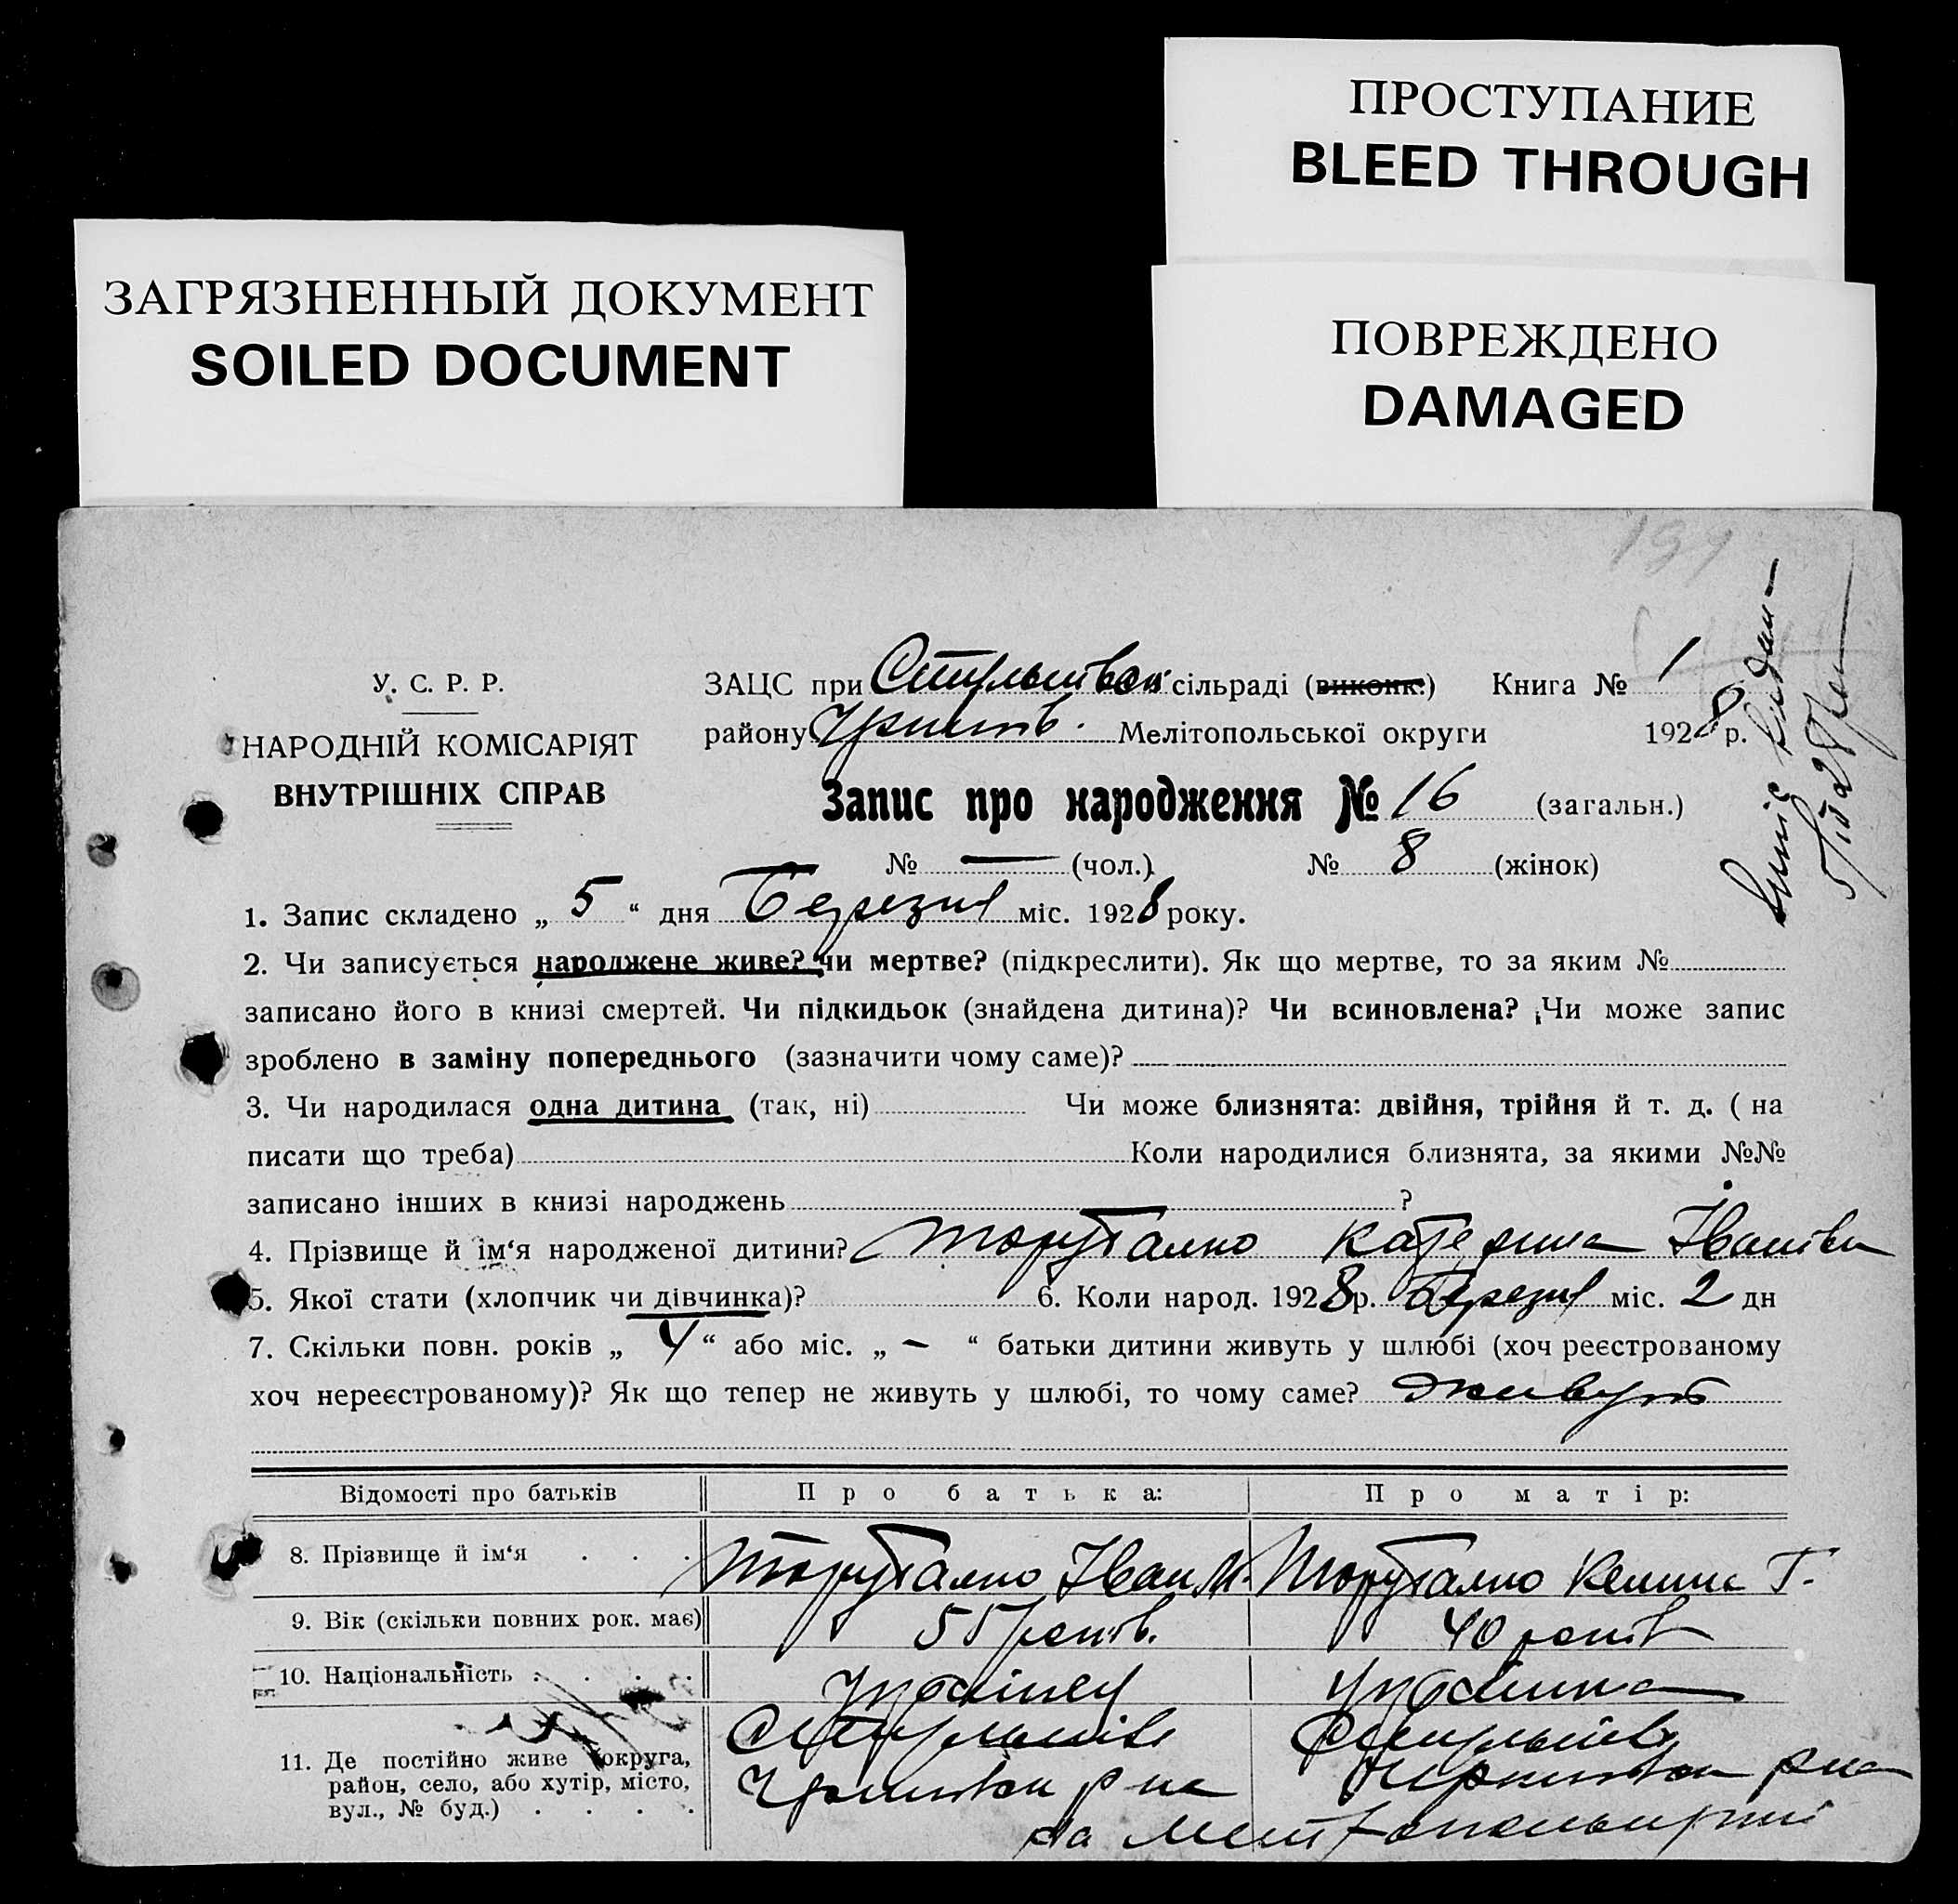 ПРОСТУПАНИЕ
BLEED THROUGH
ЗАГРЯЗНЕННЫЙ ДОКУМЕНТ
SOILED DOCUMENT
ПОВРЕЖДЕНО
DAMAGED
У. С. Р. Р.
НАРОДНІЙ КОМІСАРІЯТ
ВНУТРІШНІХ СПРАВ
ЗАЦС при сільраді (виконк.) Книга № 1
району Мелітопольської округи 1928 р.
Запис про народження № 16 (загальн.)
№ — (чол.) № 8 (жінок)
1. Запис складено „ 5 “ дня Березня міс. 1928 року.
2. Чи записується народжене живе? чи мертве? (підкреслити). Як що мертве, то за яким №
записано його в книзі смертей. Чи підкидьок (знайдена дитина)? Чи всиновлена? Чи може запис
зроблено в заміну попереднього (зазначити чому саме)?
3. Чи народилася одна дитина (так, ні) Чи може близнята: двійня, трійня й т. д. ( на
писати що треба) Коли народилися близнята, за якими №№
записано інших в книзі народжень ?
4. Прізвище й ім‘я народженої дитини? Катерина Іванівн
5. Якої стати (хлопчик чи дівчинка)? 6. Коли народ. 1928 р. Березня міс. 2 дн
7. Скільки повн. років „ 4 “ або міс. „ – “ батьки дитини живуть у шлюбі (хоч реєстрованому
хоч нереєстрованому)? Як що тепер не живуть у шлюбі, то чому саме? живуть
Відомості про батьків Про батька: Про матір:
8. Прізвище й ім‘я . . . Іван М. Г.
9. Вік (скільки повних рок. має) 55 років. 40 років
10. Національність . . . . Українец Українка
11. Де постійно живе (округа,
район, село, або хутір, місто,
вул., № буд.) . . . .
р на
р на